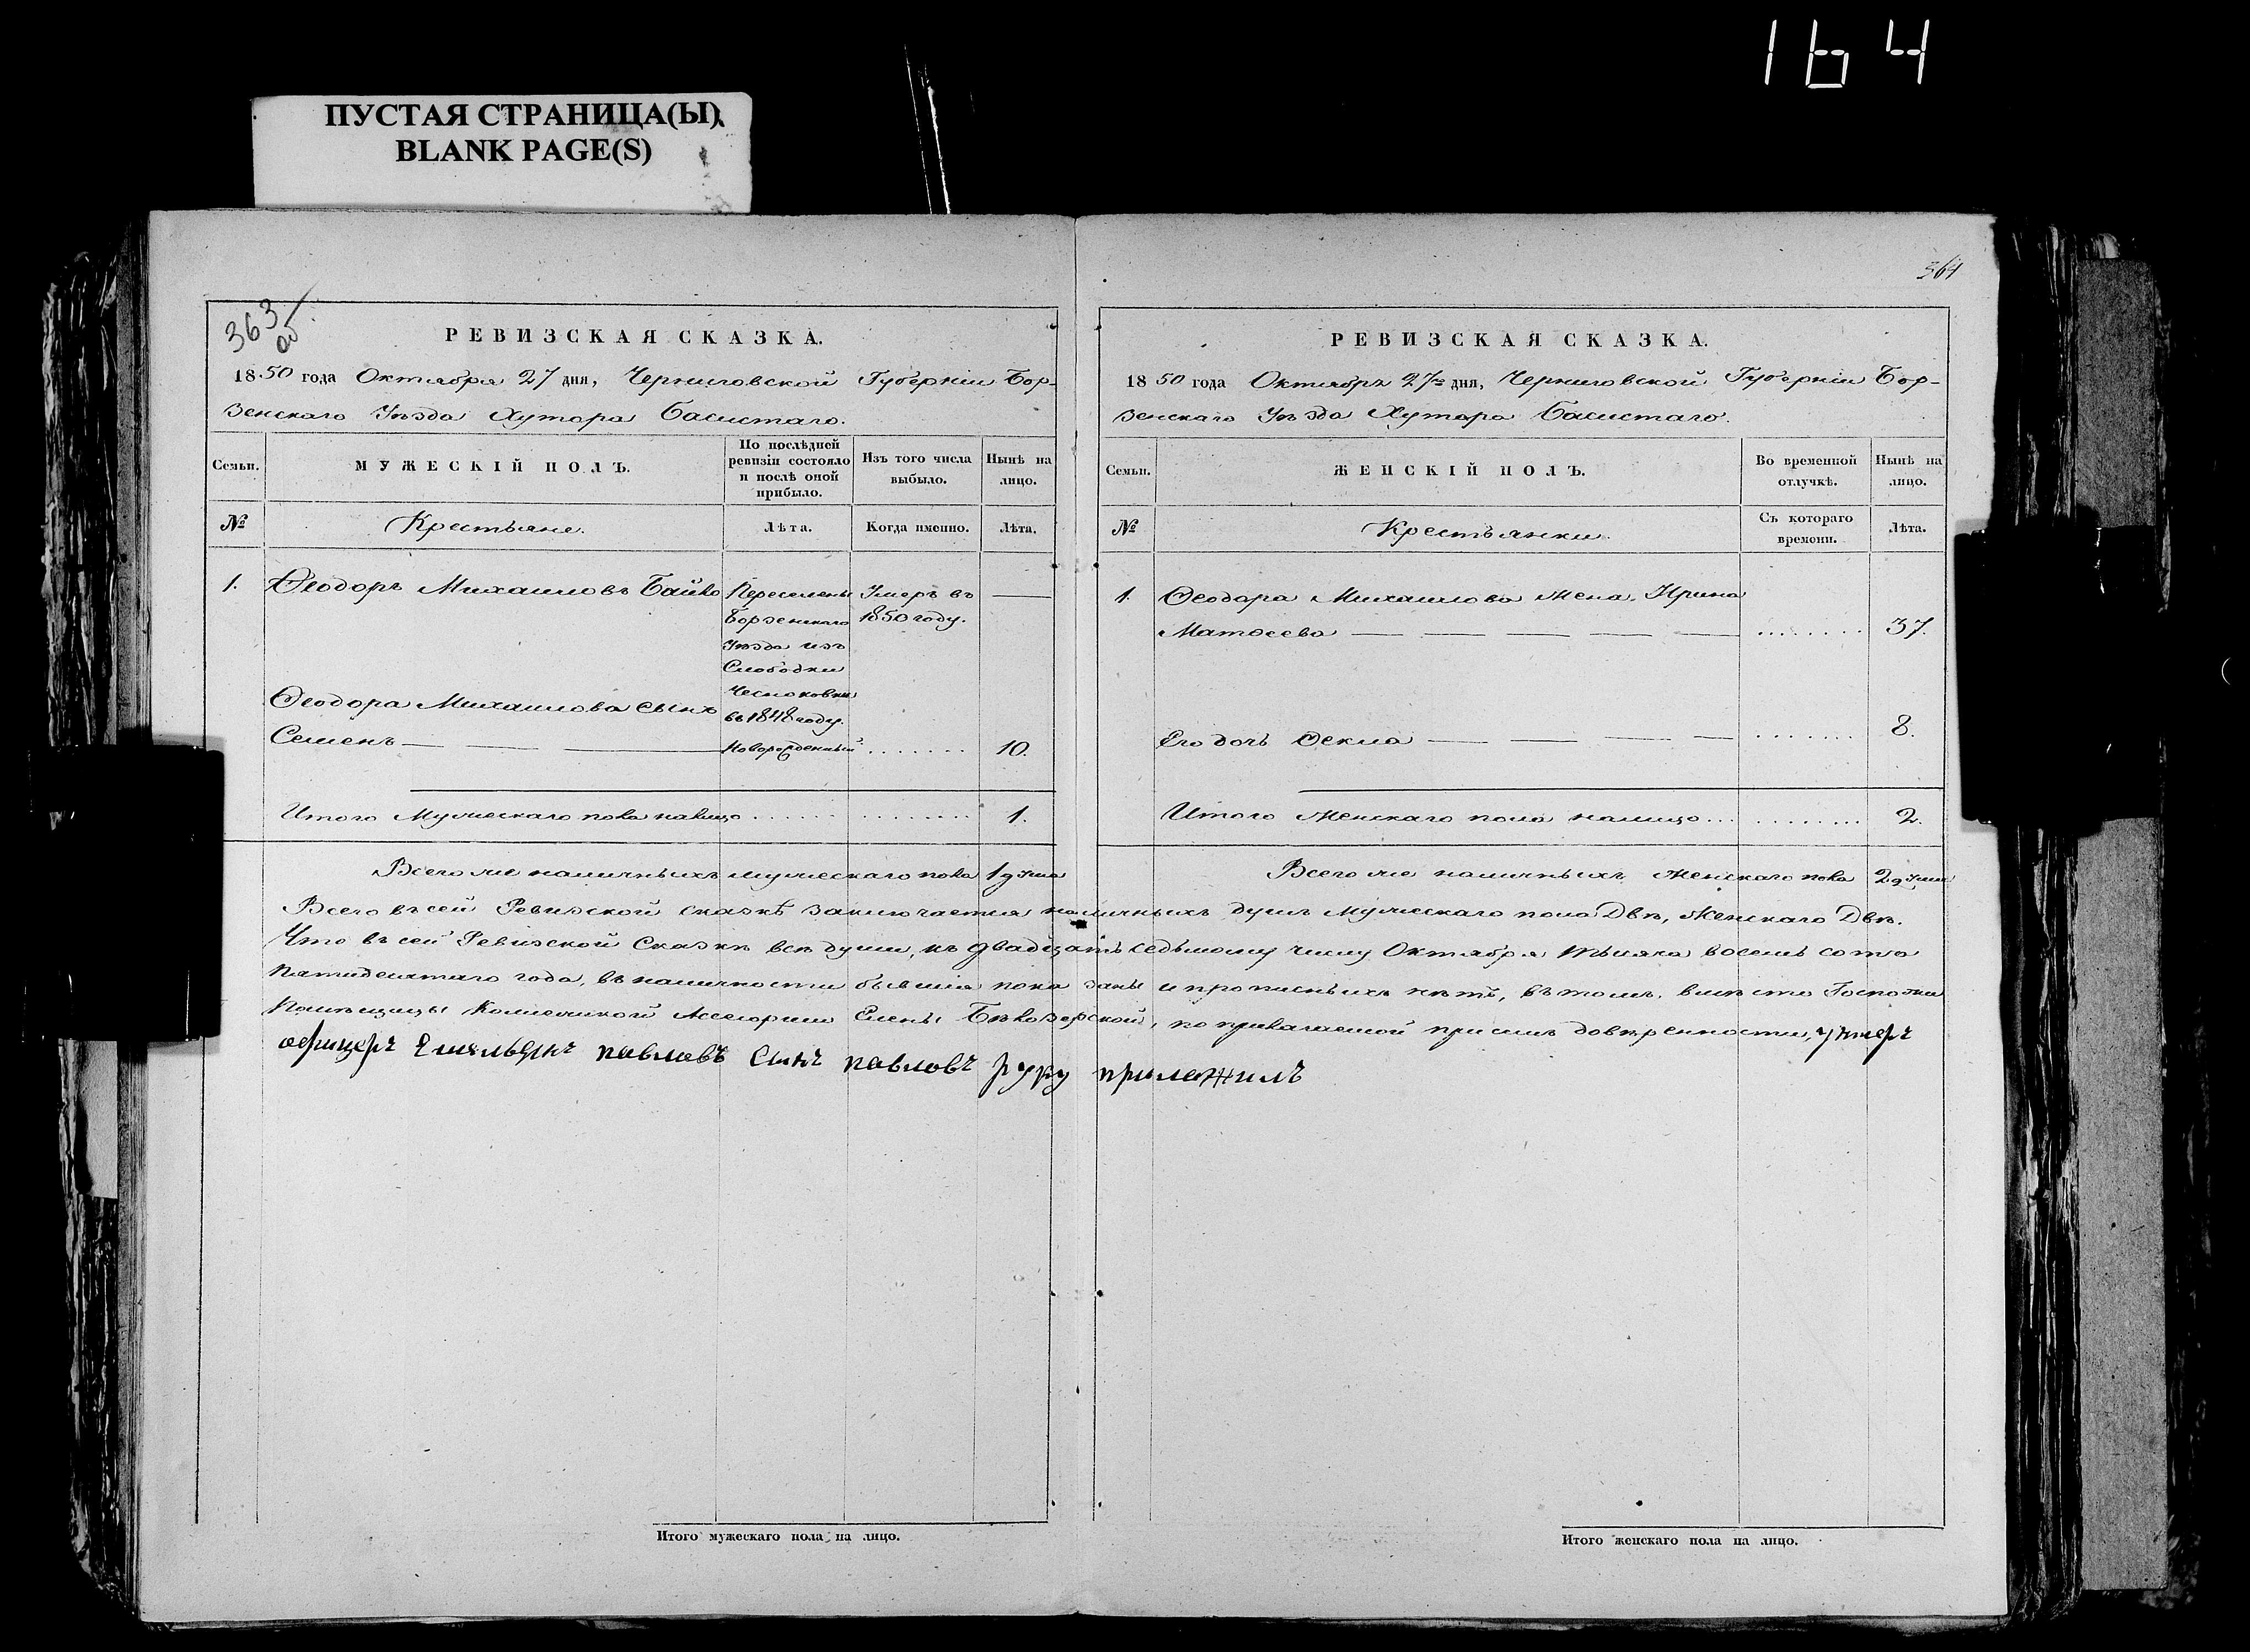 164
ПУСТАЯ СТРАНИЦА(Ы)
BLANK PAGE(S)
363 об
РЕВИЗСКАЯ СКАЗКА.
1850 года Октября 27 дня, Черниговской Губерніи Бор-
зенскаго Уѣзда Хутора Басистаго.
Семьи.
МУЖЕСКІЙ ПОЛЪ.
По послѣдней ревизіи состояло и послѣ оной прибыло.
Изъ того числа выбыло.
Нынѣ на лицо.
№
Крестьяне.
Лѣта.
Когда именно.
Лѣта.
1. Ѳеодоръ Михаиловъ Байко
Переселенъ
Борзенскаго
Уѣзда изъ
Слободки
Чесноковки
въ 1848 году.
Умеръ въ
1850 году.
Ѳеодора Михаилова сынъ
Семенъ
Новорожденный
10.
Итого Мужескаго пола налицо 1.
Всего же наличныхъ мужескаго пола 1 душа
364
РЕВИЗСКАЯ СКАЗКА.
1850 года Октября 27го дня, Черниговской Губерніи Бор-
зенскаго Уѣзда Хутора Басистаго.
Семьи.
ЖЕНСКІЙ ПОЛЪ.
Во временной отлучкѣ.
Нынѣ на лицо.
№
Крестьянки.
Съ котораго времени.
Лѣта.
1. Ѳеодора Михаилова Жена Ирина
Матѳеева 37.
Его дочь Ѳекла 8.
Итого Женскаго пола налицо 2.
Всего же наличныхъ Женскаго пола 2 души
Всего въ сей Ревизской сказкѣ заключается наличныхъ душъ Мужескаго пола Двѣ, Женскаго Двѣ.
Что въ сей Ревизской Сказкѣ всѣ души, къ двадцать седьмому числу Октября тысяча восемь сотъ
пятидесятаго года, въ наличности бывшія показаны и прописныхъ нѣтъ, въ томъ вмѣсто Госпожи
Помѣщицы Коллежской Ассесорши Елены Бѣлозерской, по прилагаемой при семъ довѣренности, унтеръ
офицеръ Емельянъ павловъ сынъ павловъ руку приложилъ
Итого мужескаго пола на лицо.
Итого женскаго пола на лицо.